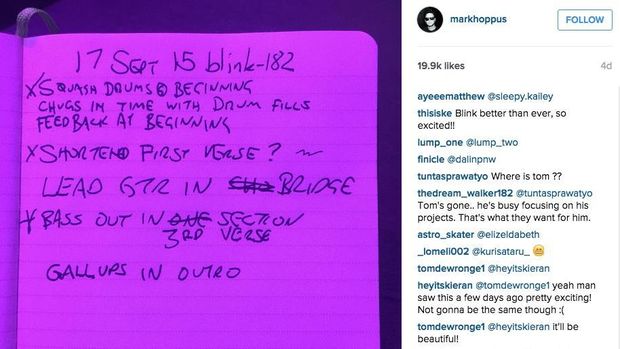 17 SEPT 15 blink-182
X SQUASH DRUMS @ BEGINNING
CHUGS IN TIME WITH DRUM FILLS
FEEDBACK AT BEGINNING
X SHORTEND FIRST VERSE?
LEAD GTR IN BRIDGE
X BASS OUT IN ONE SECTION
3RD VERSE
GALLUPS IN OUTRO
markhoppus
FOLLOW
19.9k likes
4d
ayeeematthew @sleepy.kailey
thisiske Blink better than ever, so
excited!!
lump_one @lump_two
finicle @dalinpnw
tuntasprawatyo Where is tom ??
thedream_walker182 @tuntasprawatyo
Tom's gone.. he's busy focusing on his
projects. That's what they want for him.
astro_skater @elizeldabeth
_lomeli002 @kurisataru_ 😁
tomdewronge1 @heyitskieran
heyitskieran @tomdewronge1 yeah man
saw this a few days ago pretty exciting!
Not gonna be the same though :(
tomdewronge1 @heyitskieran it'll be
beautiful!